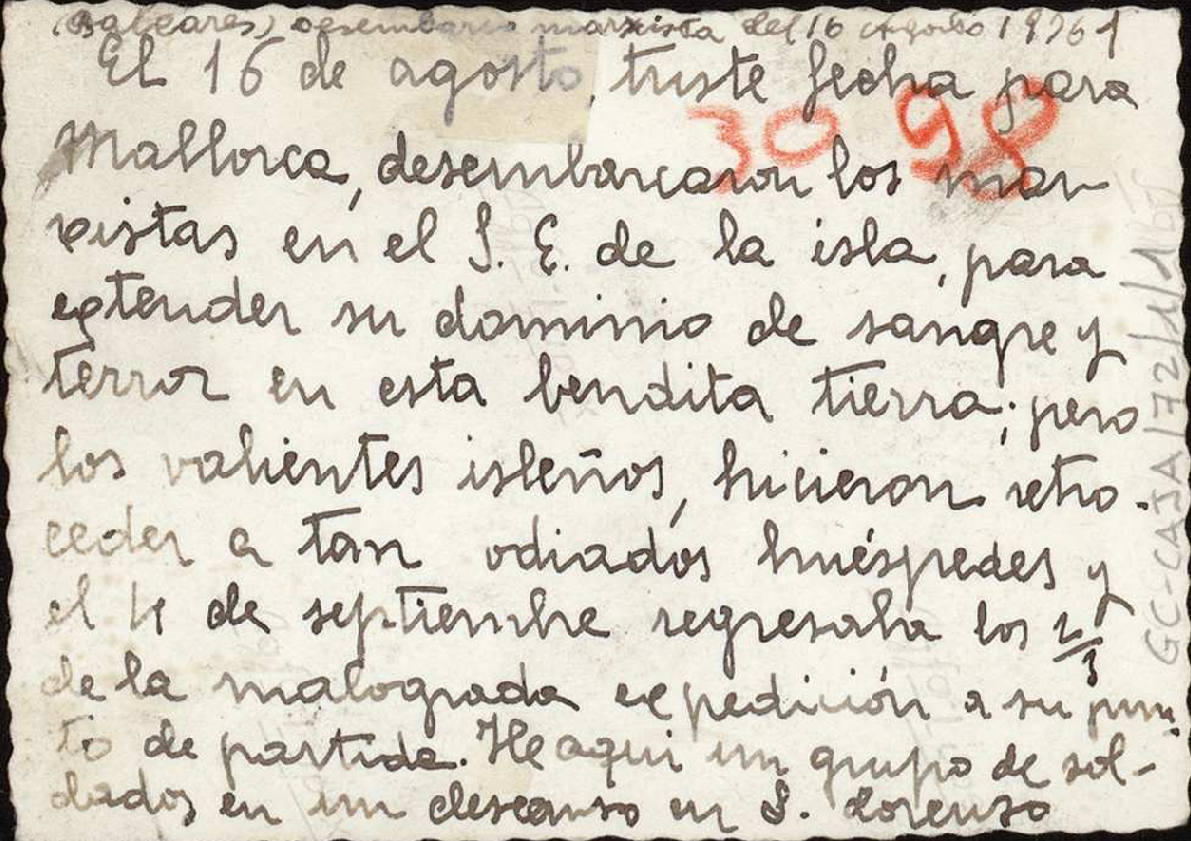 (Baleares) desembarco marxista del 16 Agosto 1936 1
El 16 de agosto, triste fecha para
30 98
Mallorca, desembarcaron los mar
xistas en el S. E. de la isla, para
extender su dominio de sangre y
terror en esta bendita tierra; pero
los valientes isleños, hicieron retro-
ceder a tan odiados huéspedes y
el 4 de septiembre regresaba los 2/3
de la malograda expedición a su pun
to de partida. He aqui un grupo de sol-
dados en un descanso en S. Lorenzo
GC-CAJA/72/1/1